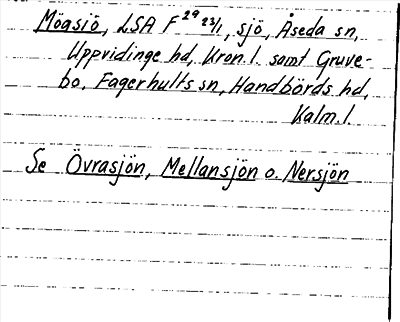 Möasjö, LSA F²⁹ ²³/₁, sjö, Åseda sn,
Uppvidinge hd, Kron. l. samt Gruve-
bo, Fagerhults sn, Handbörds hd,
Kalm. l.
Se Övrasjön, Mellansjön o. Nersjön